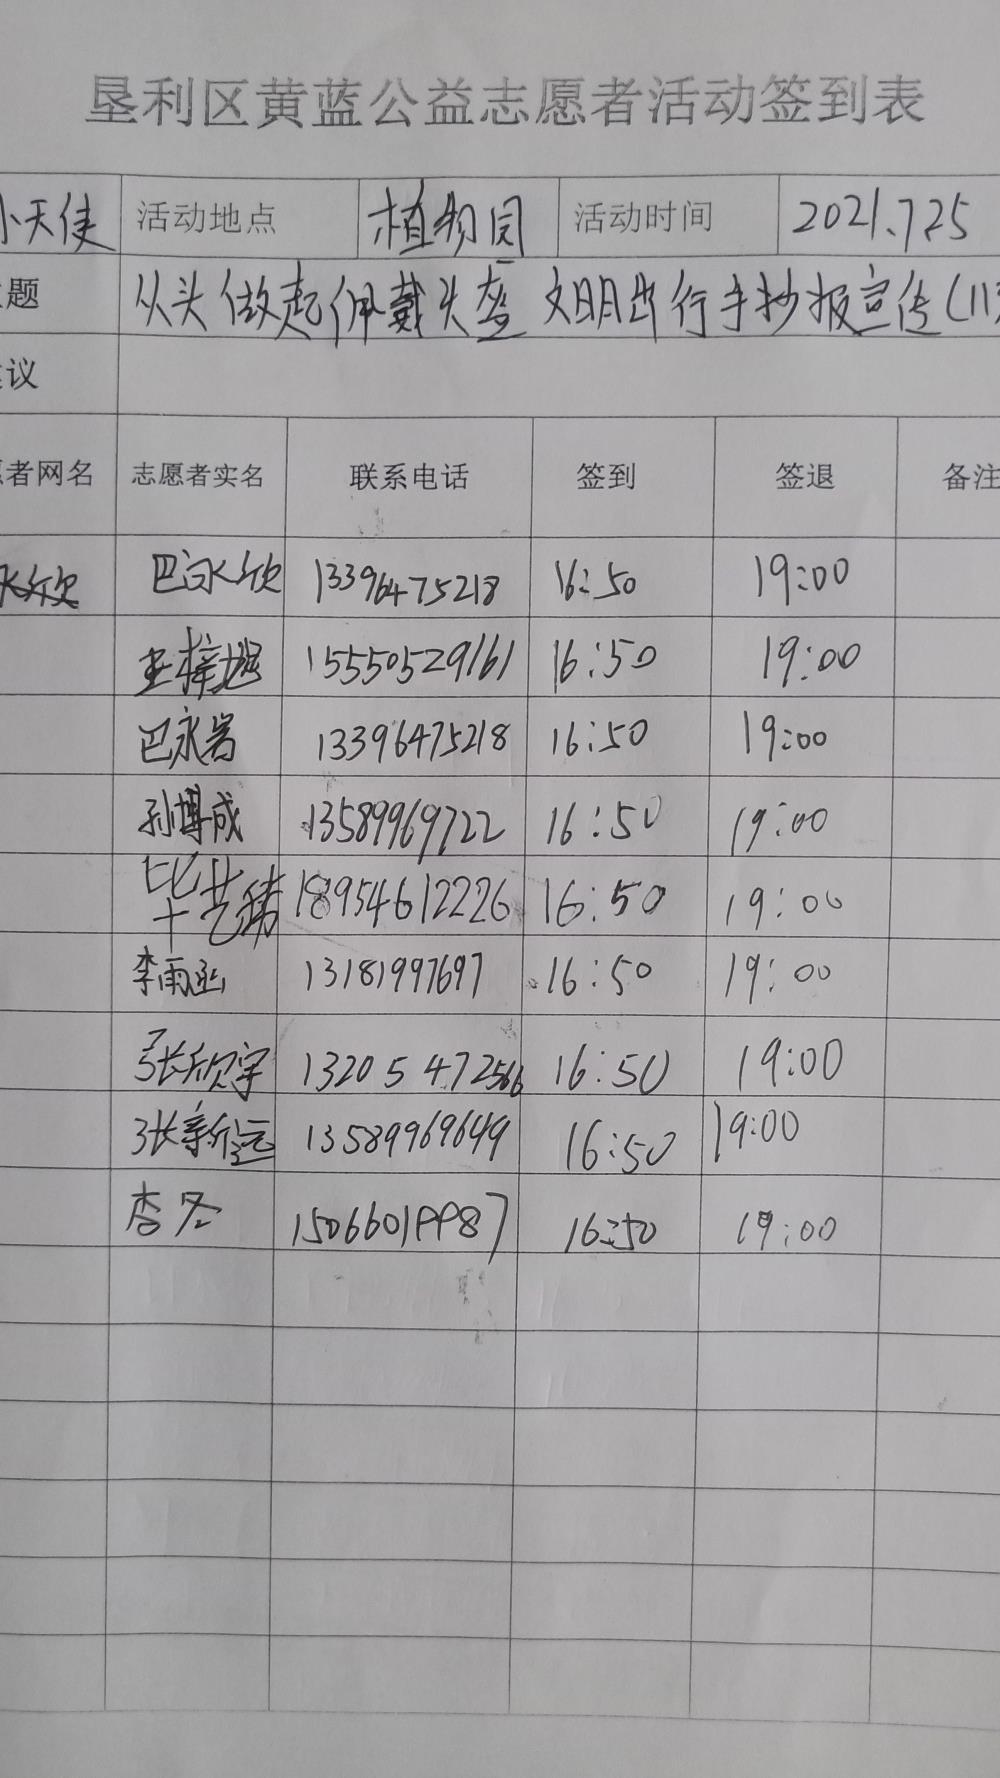 垦利区黄蓝公益志愿者活动签到表
小天使 活动地点 植物园 活动时间 2021.7.25
题 从头做起佩戴头盔 文明出行手抄报宣传(113
议
者网名 志愿者实名 联系电话 签到 签退 备注
永欣 巴永欣 13396475218 16:50 19:00
王梓旭 15550529161 16:50 19:00
巴永岩 13396475218 16:50 19:00
孙博成 13589969722 16:50 19:00
毕艺 18954612226 16:50 19:00
李雨 13181997697 16:50 19:00
张欣宇 13205472566 16:50 19:00
张新运 13589969649 16:50 19:00
李 15066019987 16:50 19:00